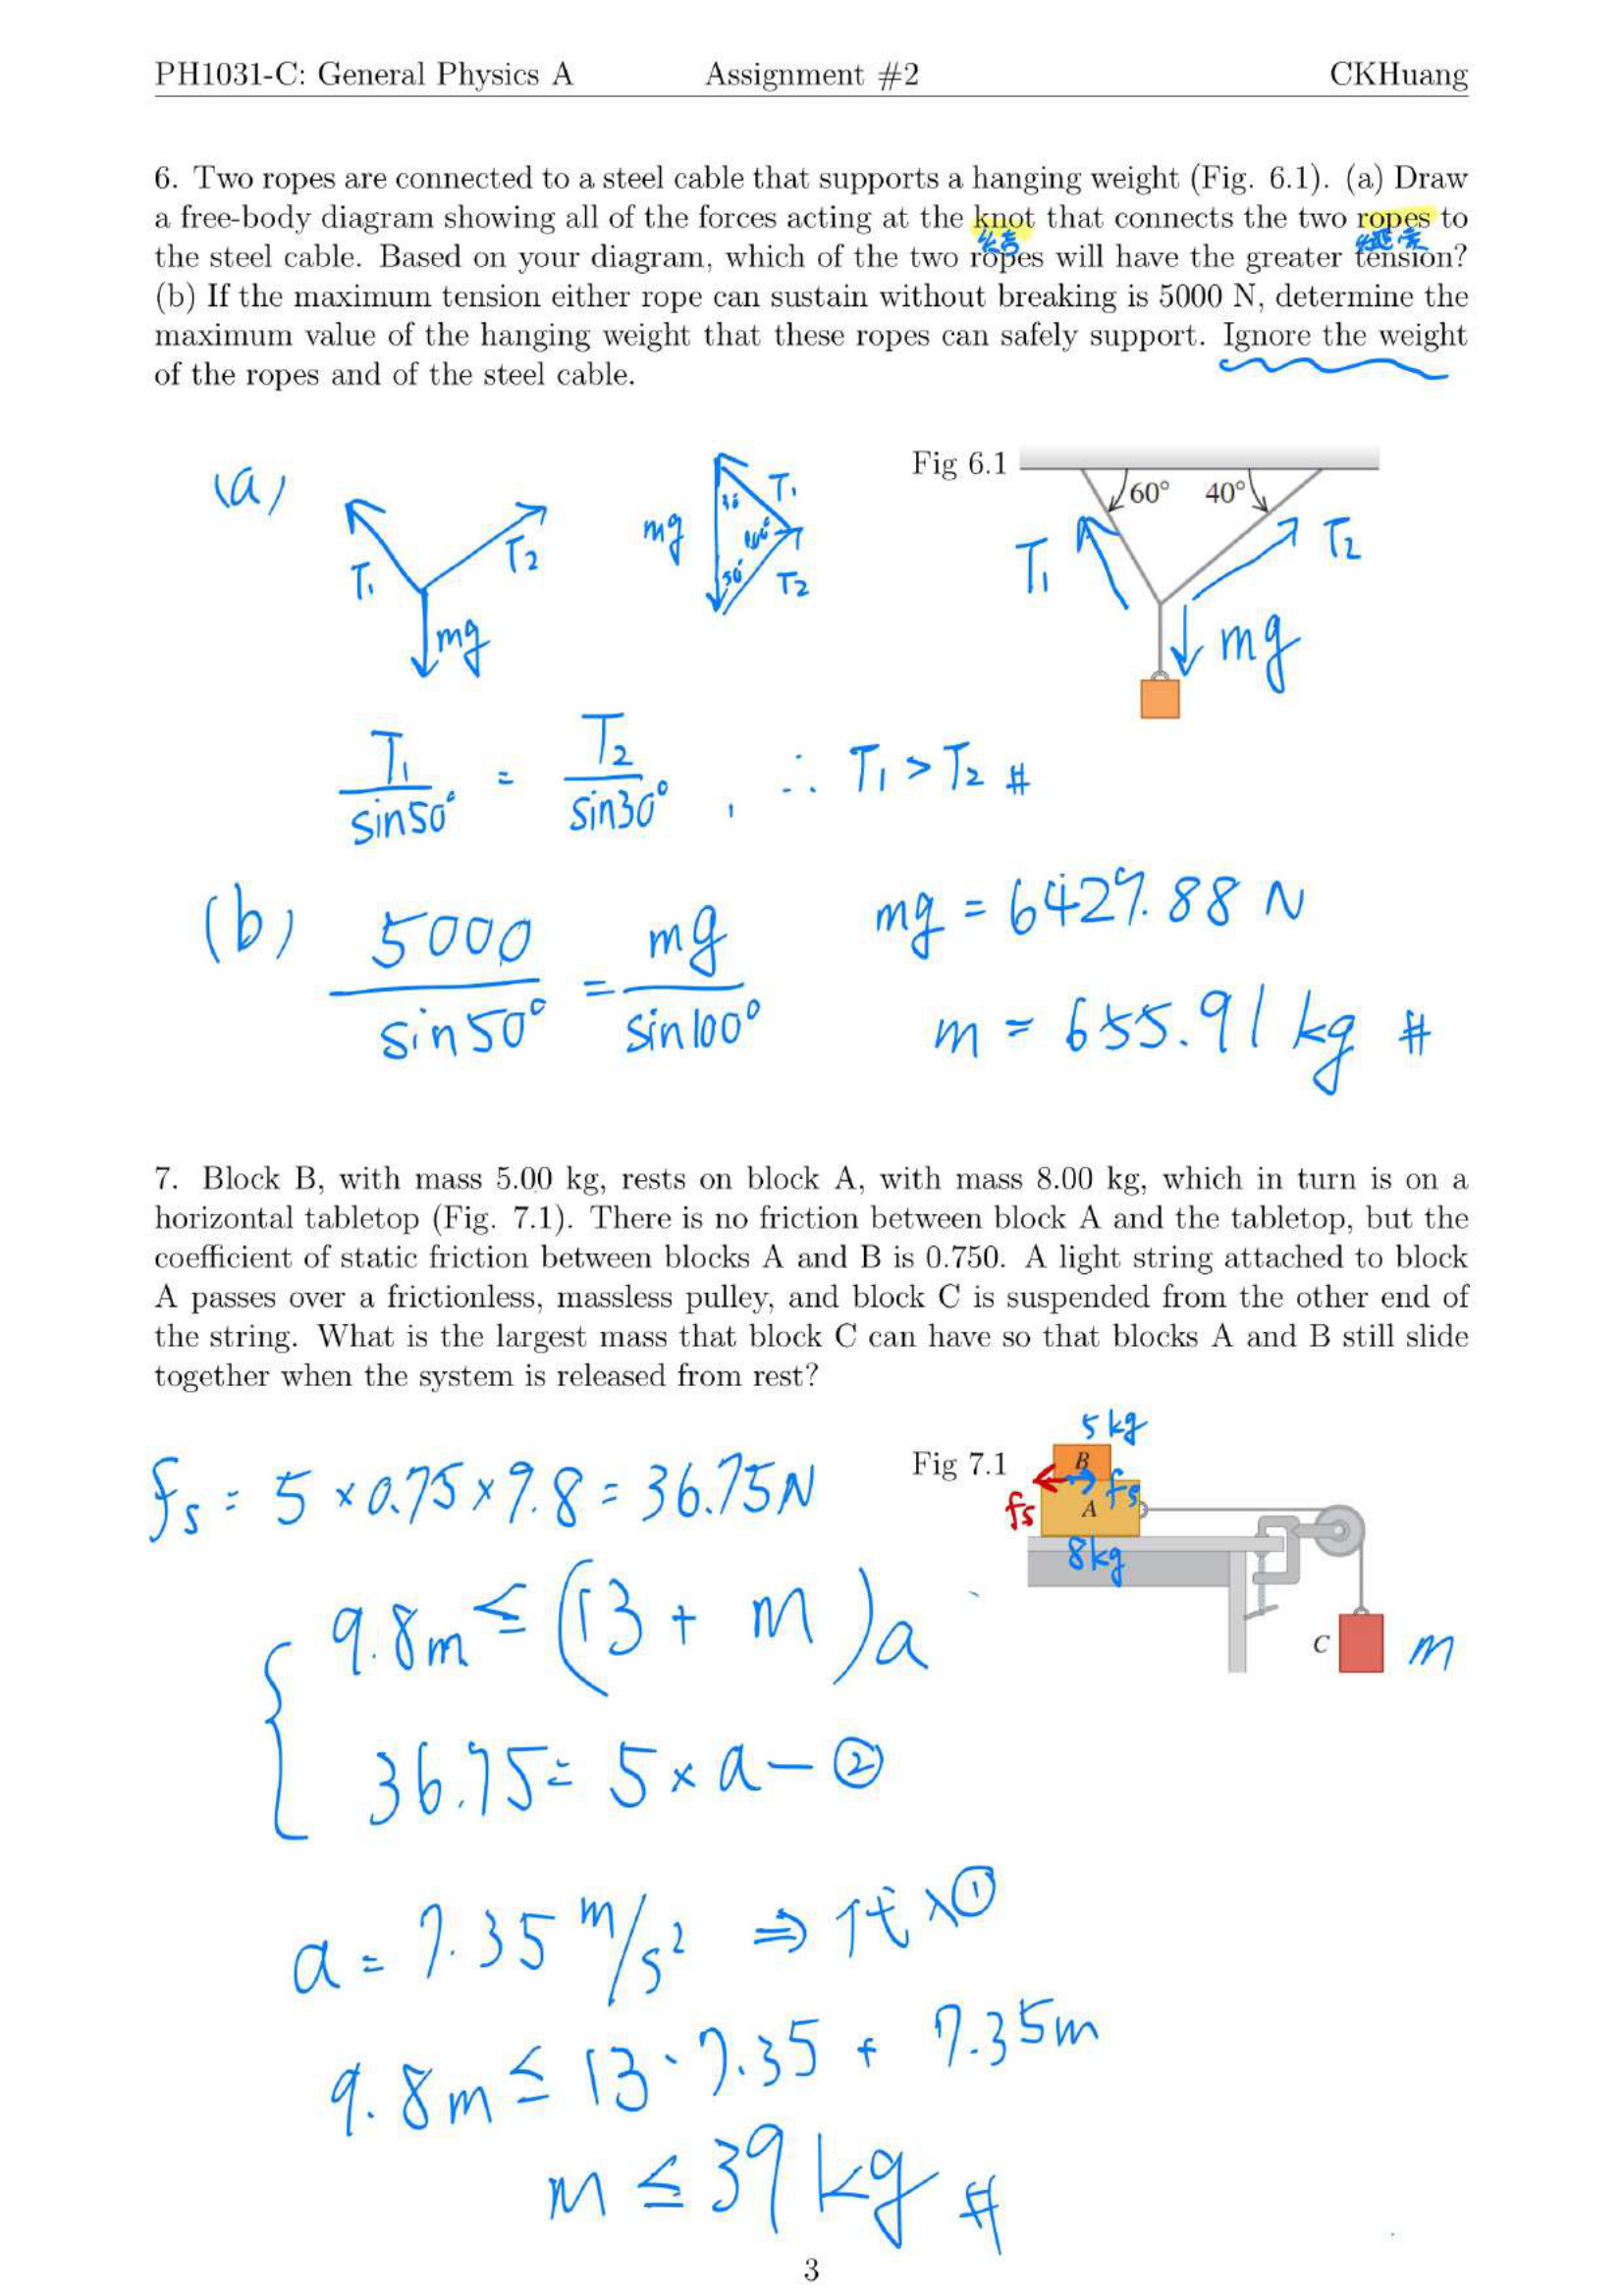 PH1031-C: General Physics A Assignment #2 CKHuang
6. Two ropes are connected to a steel cable that supports a hanging weight (Fig. 6.1). (a) Draw
a free-body diagram showing all of the forces acting at the knot that connects the two ropes to
結 繩索
the steel cable. Based on your diagram, which of the two ropes will have the greater tension?
(b) If the maximum tension either rope can sustain without breaking is 5000 N, determine the
maximum value of the hanging weight that these ropes can safely support. Ignore the weight
of the ropes and of the steel cable.
(a)
T₁ T₂ mg
mg 30 T₁ 100° 50° T₂
Fig 6.1
60° 40°
T₁ T₂ mg
T₁/sin50° = T₂/sin30° , ∴ T₁ > T₂ #
(b) 5000/sin50° = mg/sin100°
mg = 6427.88 N
m = 655.91 kg #
7. Block B, with mass 5.00 kg, rests on block A, with mass 8.00 kg, which in turn is on a
horizontal tabletop (Fig. 7.1). There is no friction between block A and the tabletop, but the
coefficient of static friction between blocks A and B is 0.750. A light string attached to block
A passes over a frictionless, massless pulley, and block C is suspended from the other end of
the string. What is the largest mass that block C can have so that blocks A and B still slide
together when the system is released from rest?
Fig 7.1
5 kg
B
fs fs
A
8kg
C m
fs = 5 × 0.75 × 9.8 = 36.75N
9.8m ≤ (13 + m)a
36.75 = 5 × a — ②
a = 7.35 m/s² ⇒ 代入①
9.8m ≤ 13 · 7.35 + 7.35m
m ≤ 39 kg #
3